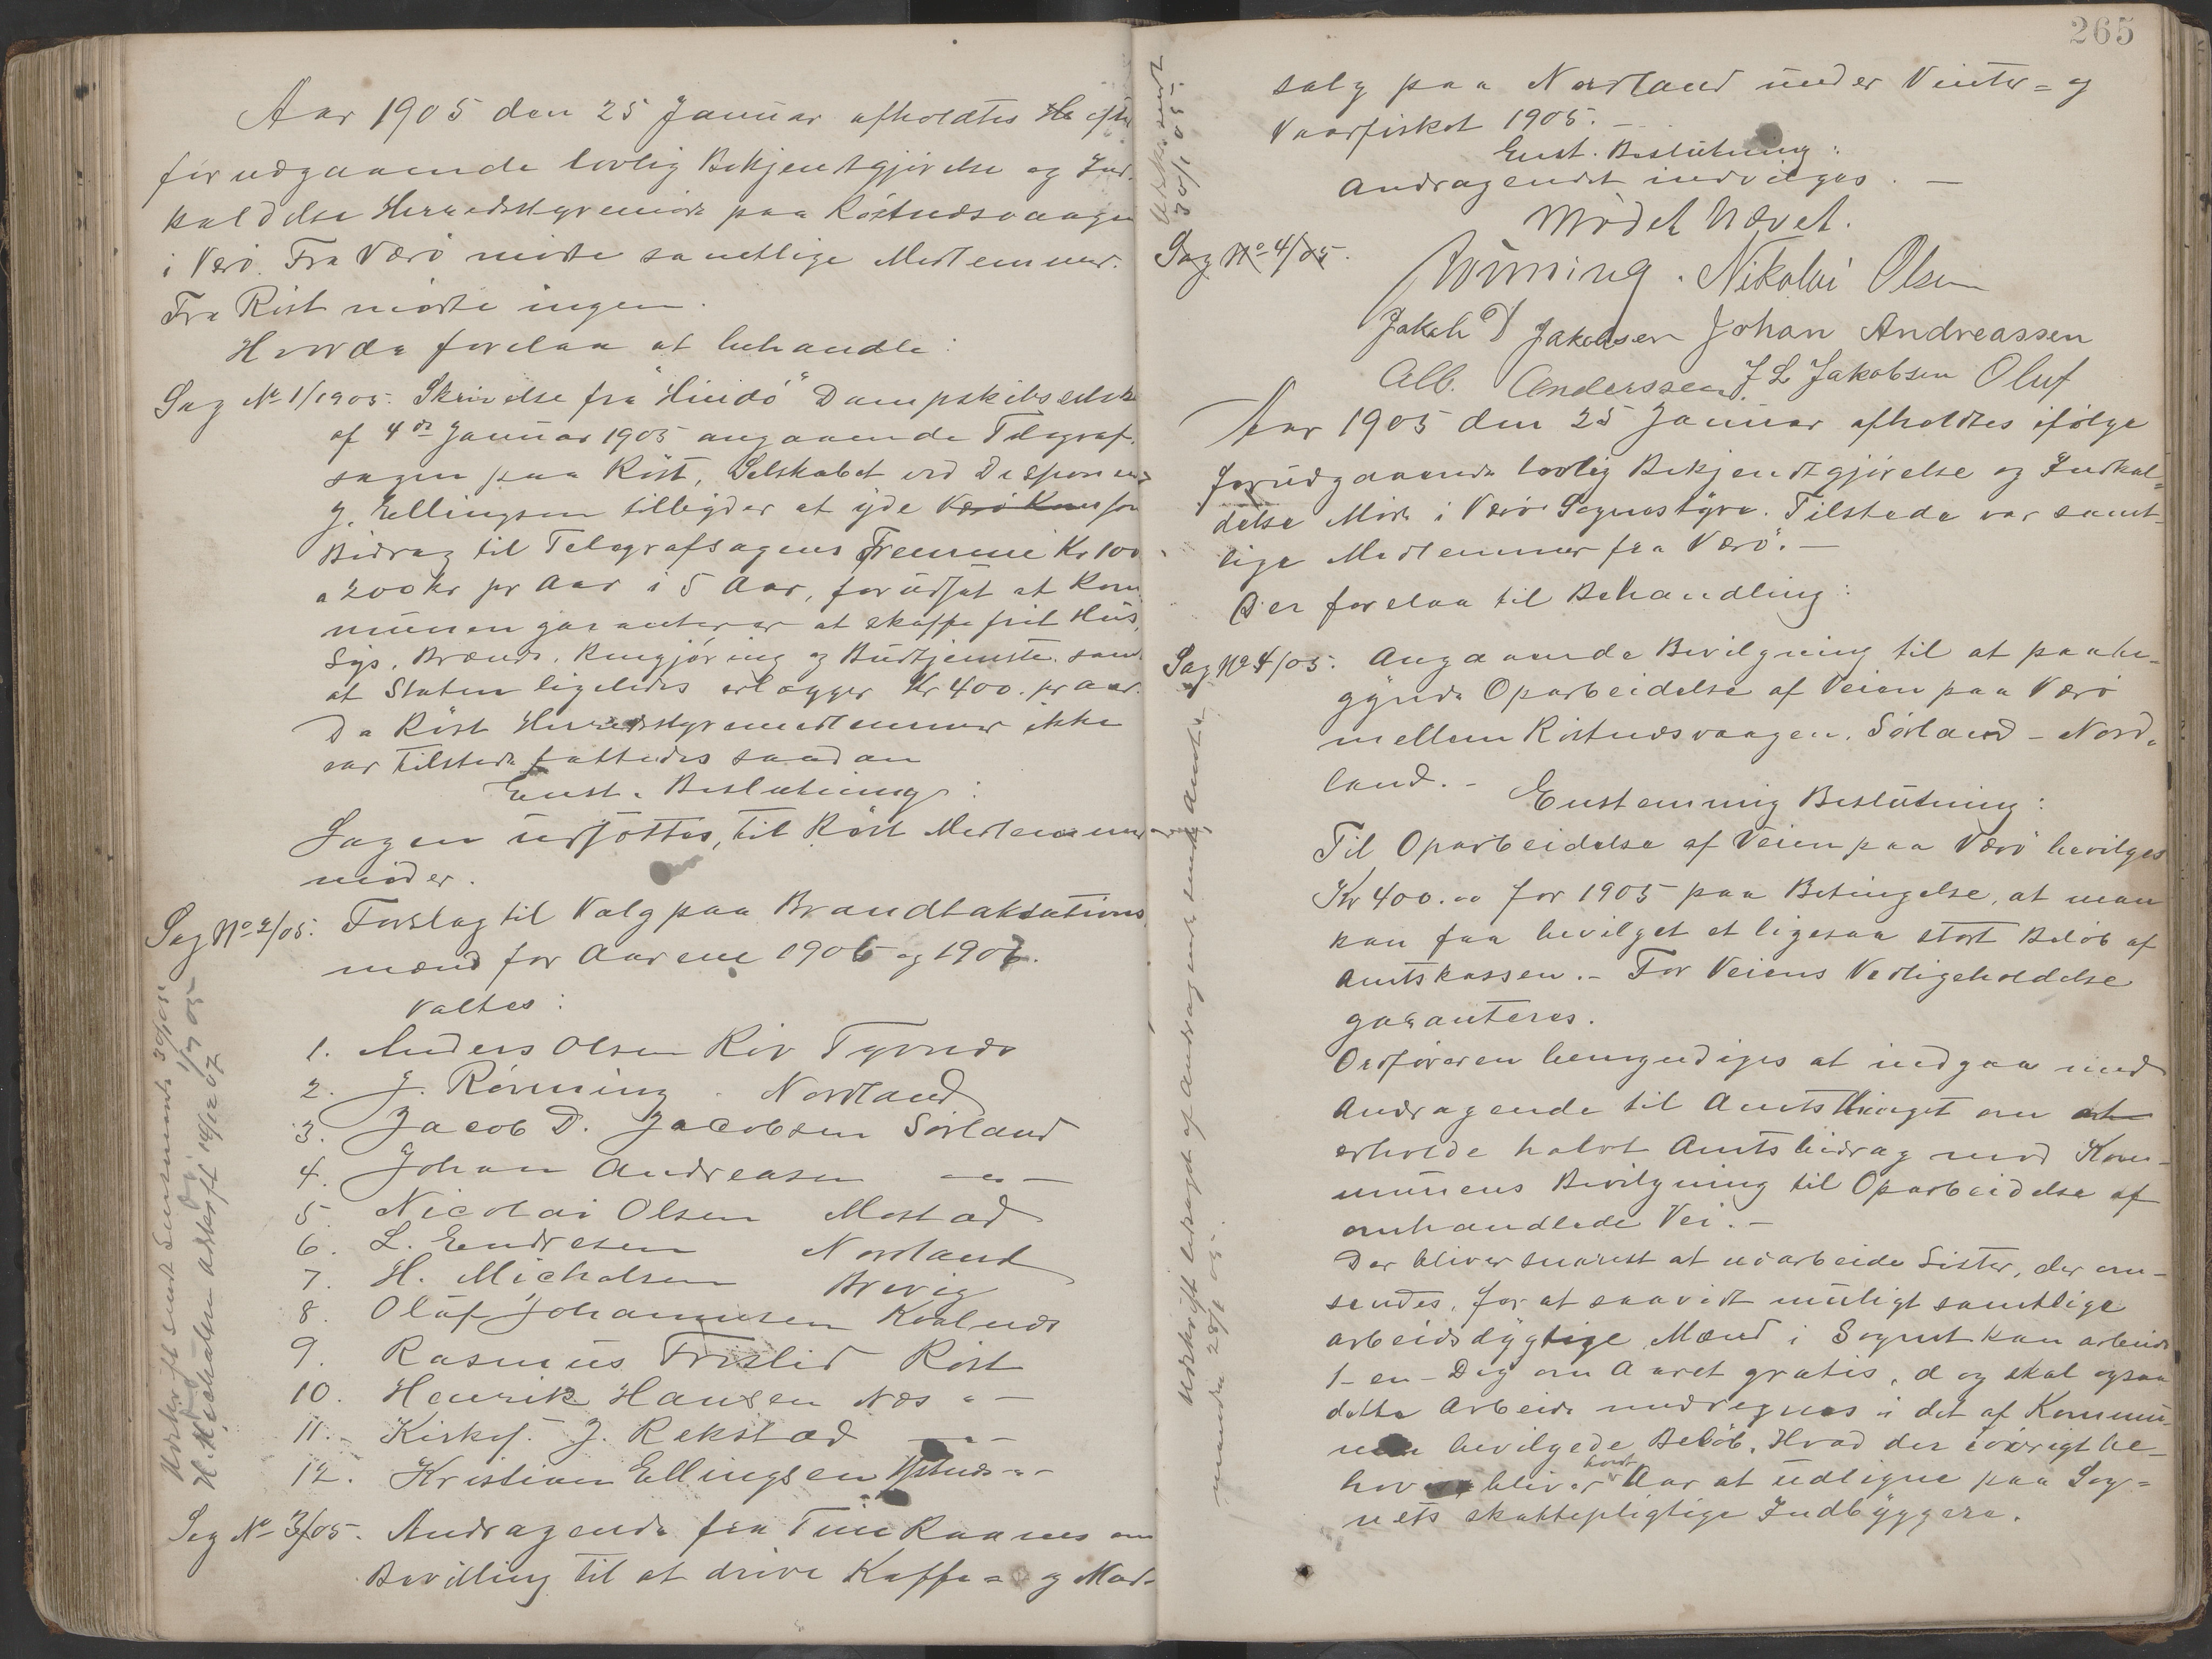 Aar 1905 den 25 Januar afholdtes He efter
forudgaaende lovlig Bekjentgjørelse og Ind-
kaldelse Herredstyremøde paa Røstnesvaagen
i Værø. Fra Værø mødte samtlige Medlemmer.
Fra Røst mødte ingen.
Hvorda forelaa at behandle:
Sag No 1/1905. Skrivelse fra "Hindø" Dampskibsselsk
af 4de Januar 1905 angaaende Telegraf-
sagen paa Røst, Selskabet ved Disponent
J. Ellingsen tilbyder at yde Værø Kom for
Bidrag til Telegrafsagens Fremme Kr 100
a 200 kr pr Aar i 5 Aar, forudsat at Kom
munen garanterer at skaffe frit Hus,
Lys, Brænde, Rengjøring og Budtjeneste samt
at Staten ligeledes erlægger Kr 400. pr Aar.
Da Røst Herredstyremedlemmer ikke
var tilstede fattedes saadan
Enst. Beslutning:
Sagen udsættes, til Røst Medlemmer
møder.
Sag No 2/05. Forslag til Valg paa Brandtaksations
mænd for Aarene 1906 og 1907.
Valtes:
1. Anders Olsen Riv Tyvnes
2. J. Rønning. Nordland
3. Jacob D. Jacobsen Sørland
4. Johan Andreasen —"—
5. Nicolai Olsen Mostad
6. L. Endresen Nordland
7. H. Michalsen Brevig
8. Oluf Johannesen Kvalnes
9. Rasmus Frislid Røst
10. Henrik Hansen Næs "—
11. Kirkes. J. Rekstad —"—
12. Kristian Ellingsen —"—
Sag No 3/05. Andragende fra Tine Raanes om
Bevilling til at drive Kaffe- og Mad-
Udskrift sendt Lensmand 30/1 05
H. Michalsen Udskrift 14/12 07
265
salg paa Nordland under Vinter- og
Vaarfisket 1905. —
Enst. Beslutning:
Andragendet indvilges. —
Mødet hævet.
Udskr sendt
30/1 05.
Sag No 4/05.
Rønning. Nikolai Olsen
Jakob D Jakobsen Johan Andreassen
Alb. Anderssen J L Jakobsen Oluf
Aar 1905 den 25 Januar afholdtes ifølge
forudgaaende lovlig Bekjendtgjørelse og Indkal-
delse Møde i Værø Sognestyre. Tilstede var samt-
lige Medlemmer fra Værø. —
Der forelaa til Behandling:
Sag No 4/05. Angaaende Bevilgning til at paabe-
gynde Oparbeidelse af Veien paa Værø
mellem Røstnesvaagen, Sørland – Nord-
land. – Enstemmig Beslutning:
Til Oparbeidelse af Veien paa Værø bevilges
Kr 400.00 for 1905 paa Betingelse, at man
kan faa bevilget et ligesaa stort Beløb af
Amtskassen. – For Veiens Vedligeholdelse
garanteres.
Ordføreren bemyndiges at indgaa med
Andragende til Amtsthinget om at
erholde halvt Amtsbidrag mod Kom-
munens Bevilgning til Oparbeidelse af
omhandlede Vei. –
Der bliver snarest at udarbeide Lister, der om-
sendes, for at saavidt muligt samtlige
arbeidsdygtige Mænd i Sognet kan arbeide
1- en - Dag om Aaret gratis, dog skal ogsaa
dette Arbeide medregnes i det af Kommu-
nen bevilgede Beløb. Hvad der iøvrigt be-
høves bliver hvert Aar at udligne paa Sog-
nets skattepligtige Indbyggere.
Udskrift ledsaget af Andragende sendt Amtet
28/1 05.